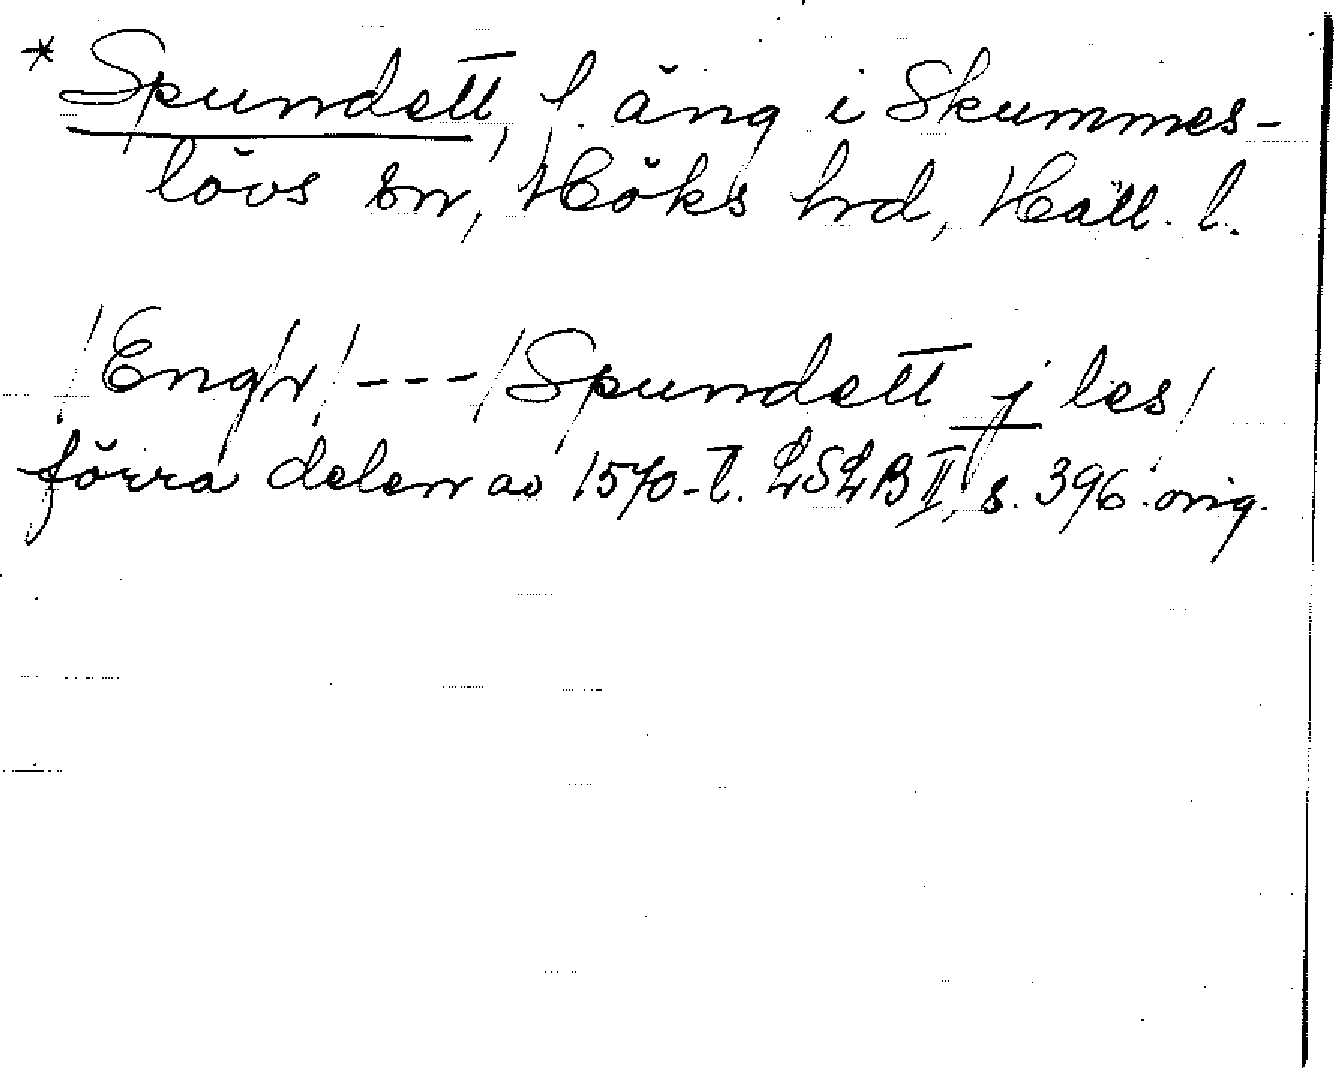 * Spundett, f. äng i Skummes-
lövs sn, Höks hrd, Hall. l.
/Eng/r/ --- /Spundett j les/
förra delen av 1570-t. LSLB II, s. 396 orig.